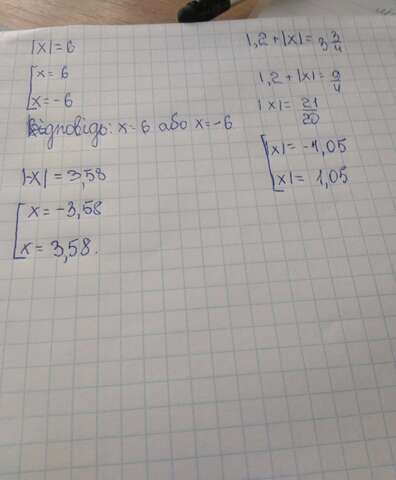 |x|=6
x=6
x=-6
Відповідь: x=6 або x=-6
|-x|=3,58
x=-3,58
x=3,58.
1,2+|x|=3 3/4
1,2+|x|=9/4
|x|=21/20
|x|=-1,05
|x|=1,05